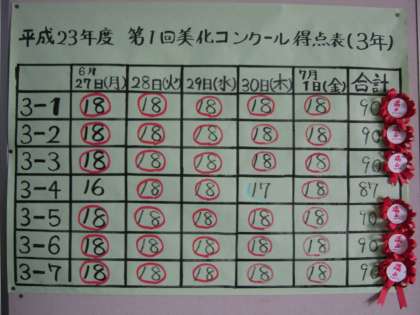 平成23年度 第1回美化コンクール得点表(3年)
6月 27日(月) 28日(火) 29日(水) 30日(木) 7月 1日(金) 合計
3-1 18 18 18 18 18 90
3-2 18 18 18 18 18 90
3-3 18 18 18 18 18 90
3-4 16 18 18 17 18 87
3-5 18 18 18 18 18 90
3-6 18 18 18 18 18 90
3-7 18 18 18 18 18 90